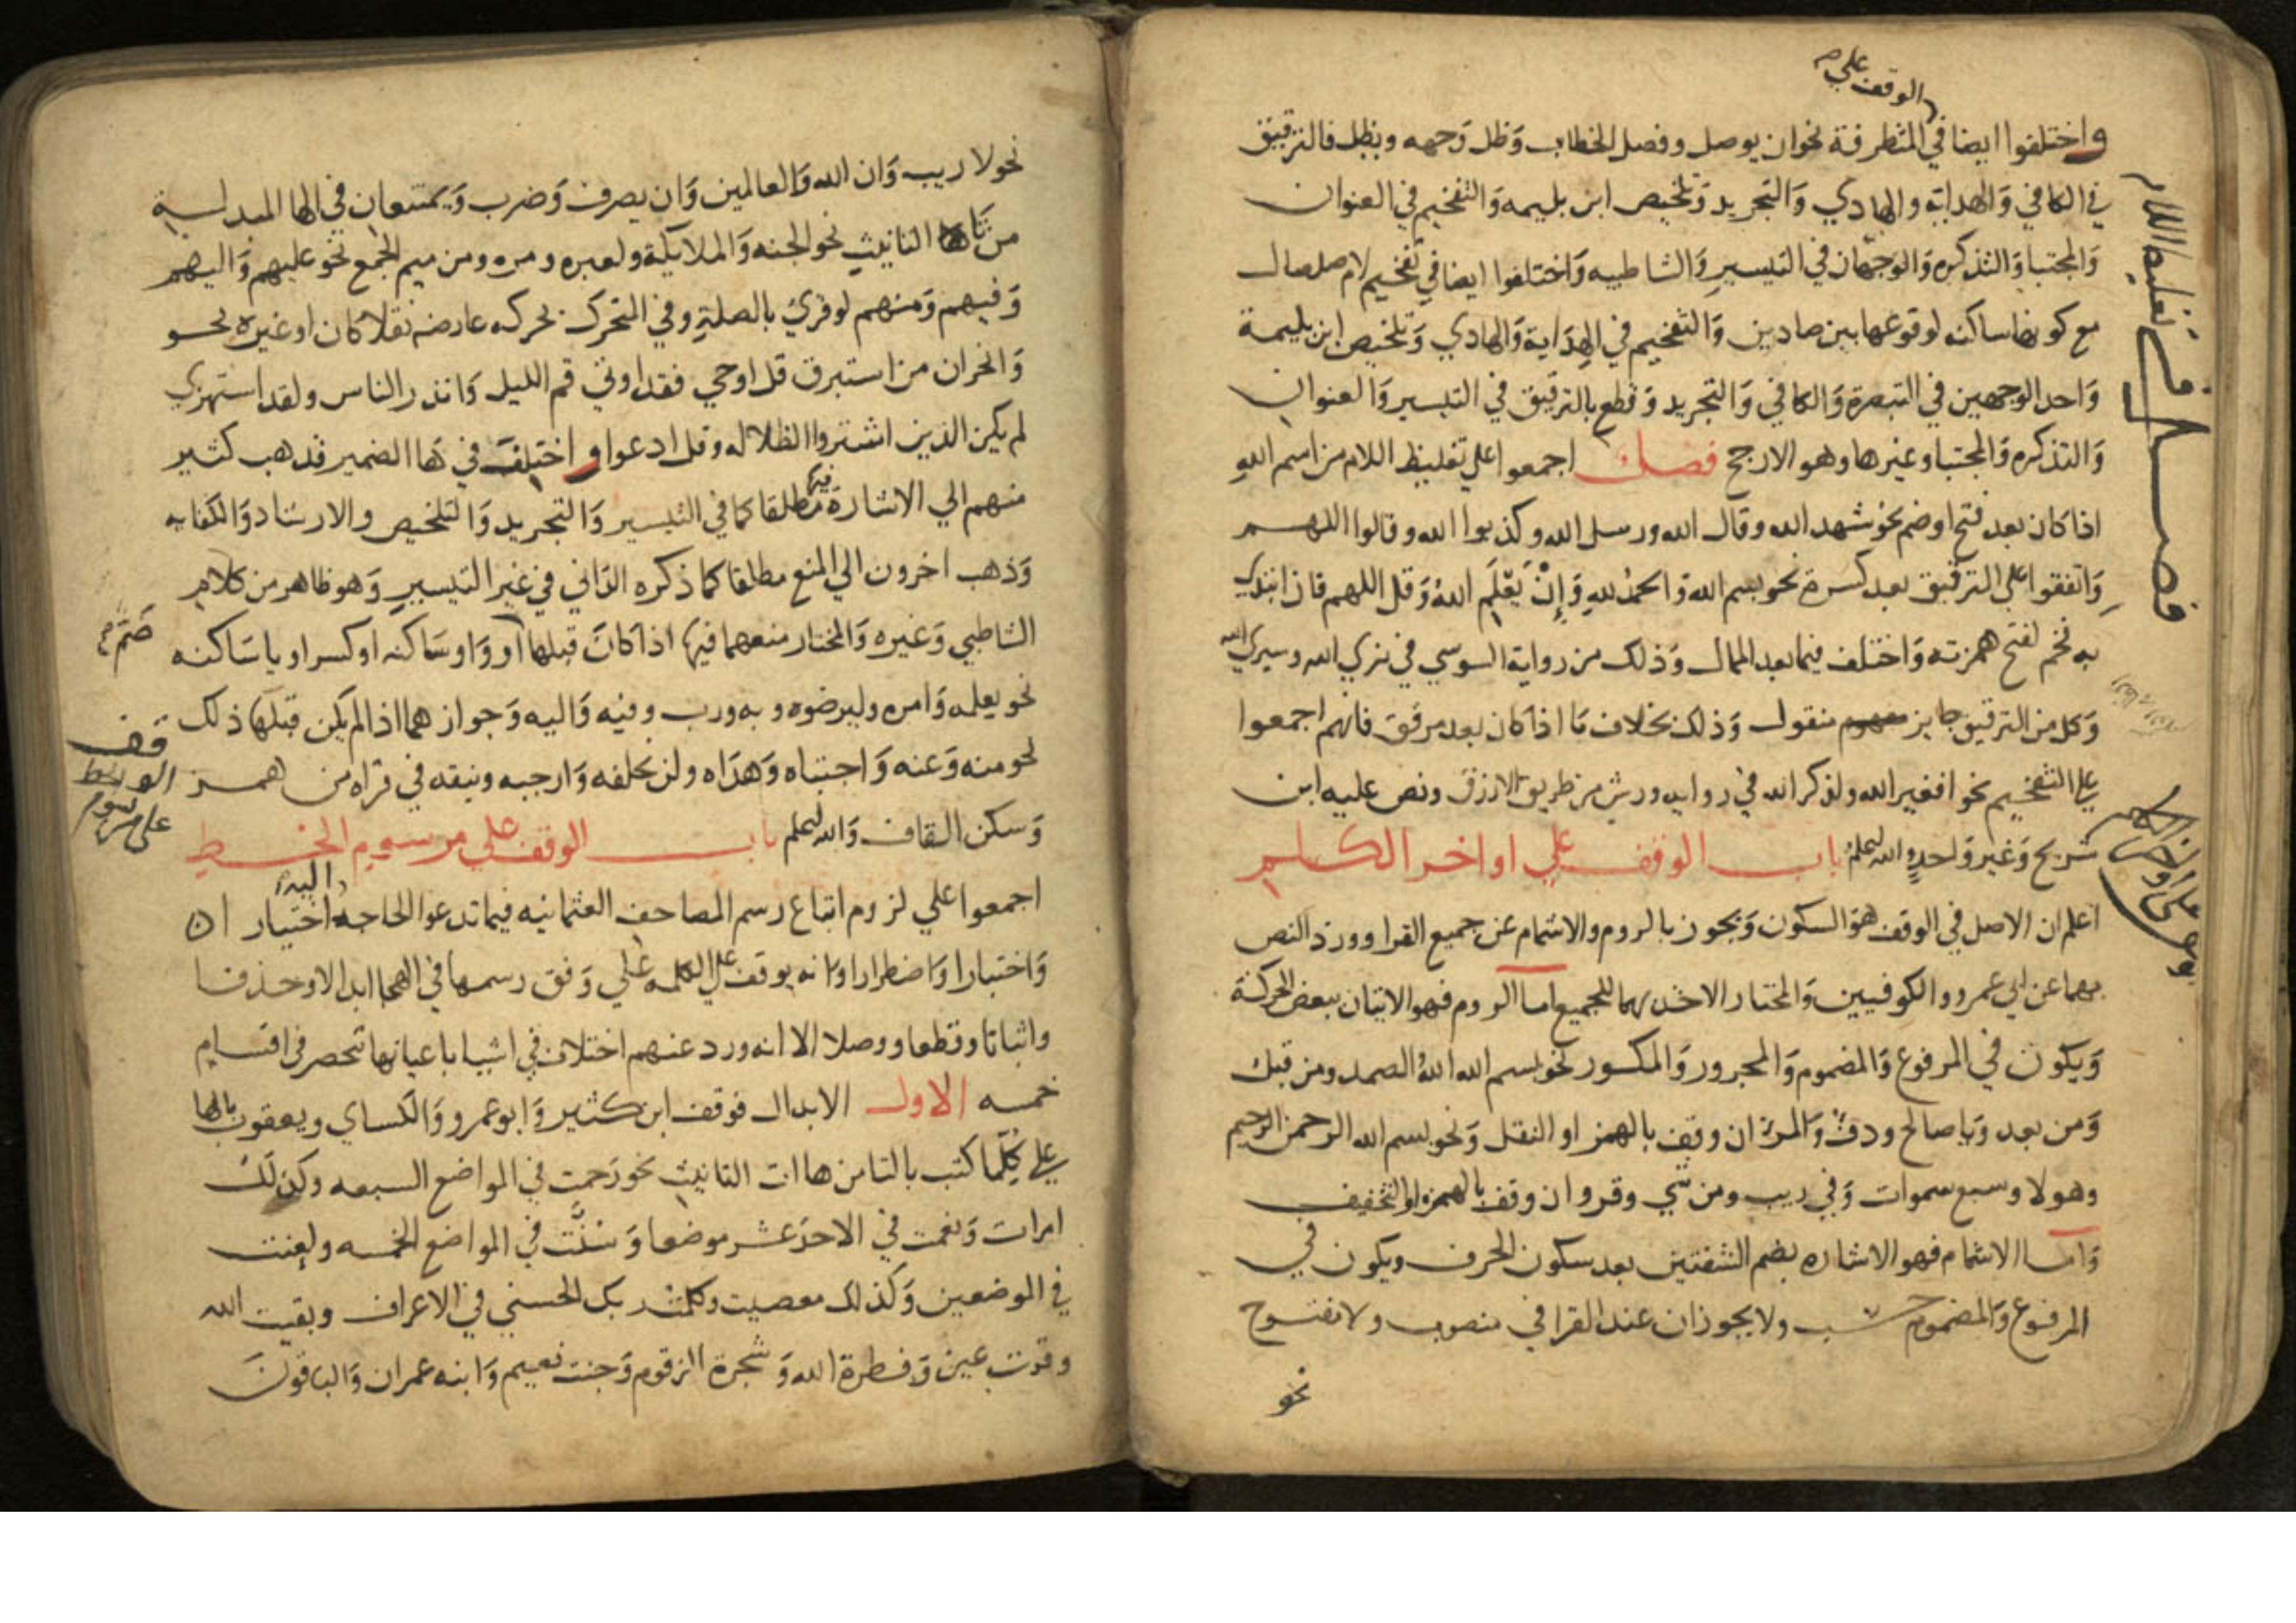 الوقف علي م
واختلفوا ايضا في المتطرفة نحو ان يوصل وفصل الخطاب وَظل وَجهه وبطل فالترقيق
في الكافي وَالهداية والهادي وَالتجريد وَتلخيص ابن بليمه وَالتفخيم في العنوان
وَالمجتبا وَالتذكره وَالوجهان في التيسير وَالشاطبيه وَاختلفوا ايضا في تفخيم لام صلصال
مع كونها ساكنه لوقوعها بين صادين وَالتفخيم في الهِدَاية وَالهادي وَتلخيص ابن بليمة
وَاحد الوجهين في التبصرة وَالكافي وَالتجريد وَقطع بالترقيق في التيسير وَالعنوان
وَالتذكره وَالمجتبا وغيرها وهو الارجح فصل اجمعوا علي تغليظ اللام من اسم الله
اذا كان بعد فتح اوضم نحو شهد الله وقال الله ورسل الله وكذبوا الله وقالوا اللهم
وَاتفقوا علي الترقيق بعد كسرة نحو بسم الله وَالحمد لله وَإِنْ يَعْلَمِ اللهُ وَقل اللهم فان ابتدي
به فخم لفتح همزته وَاختلف فيما بعد الممال وَذلك من رواية السوسي في نري الله وسيري الله
وَكل من الترقيق جايز منقول وَذلك بخلاف مَا اذا كان بعد مرقق فانهم اجمعوا
علي التفخيم نحو افغير الله ولذكر الله في روايه ورش من طريق الازرق ونص عليه ابن
شريح وَغير وَاحدٍ والله اعلم باب الوقف علي اواخر الكلم
اعلم ان الاصل في الوقف هوَ السكون وَيجوز بالروم والاشمام عن جميع القرا وورد النص
بهما عن ابي عمرو والكوفيين وَالمختار الاخذ بهما للجميع اما الروم فهو الاتيان ببعض الحركة
وَيكون في المرفوع وَالمضموم وَالمجرور وَالمكسور نحو بسم الله اللهُ الصمد ومن قبل
وَمن بعد وَيا صالح ودفء وَالمرء ان وقف بالهمز او النقل وَنحو بسم الله الرحمن الرحيم
وهولا وسبع سموات وَفي ريب ومن شي وقرو ان وقف بالهمزه او التخفيف
وَاما الاشمام فهو الاشاره بضم الشفتين بعد سكون الحرف ويكون في
المرفوع وَالمضموم حسب ولا يجوزان عند القرا في منصوب ولا مفتوح
نحو
فصل في تغليظ اللام
الوقف علي اواخر الكلم
نحو لا ريب وَان الله وَالعالمين وَان يصرف وَضرب وَيمتنعان في الها المبدلة
من تا التانيث نحو الجنه وَالملايكة ولعبره ومره ومن ميم الجمع نحو عليهم وَاليهم
وَفيهم وَمنهم لو قري بالصلة وفي المتحرك بحركه عارضه نقلا كان او غيره نحو
وَانحر ان من استبرق قل اوحي فقد اوتي قم الليل وَانذر الناس ولقد استهزي
لم يكن الذين اشتروا الظلاله وقل ادعوا واختلف في هَا الضمير فذهب كثير
منهم الي الاشارة فيها مطلقا كما في التيسير وَالتجريد وَالتلخيص والارشاد وَالكفايه
وَذهب اخرون الي المنع مطلقا كما ذكره الدَاني في غير التيسير وَهو ظاهر من كلام
الشاطبي وَغيره وَالمختار منعهما فيها اذا كان قبلها او وَاو سَاكنه او كسر او يا سَاكنه
ضَم م
نحو يعلمه وَامره وليرضوه وبه ورب وفيه وَاليه وَجوازهما اذا لم يكن قبلها ذلك
نحو منه وَعنه وَاجتباه وَهدَاه ولن نخلفه وَارجيه ويتقه في قراه من همز
وَسكن القاف وَالله اعلم باب الوقف علي مرسوم الخط
وقف
الوخط
علي مرسوم
اجمعوا علي لزوم اتباع رسم المصاحف العثمانيه فيما تدعوا الحاجه اليه اختيارا
وَاختبارا وَاضطرارا وانه يوقف علي الكلمه علي وَفق رسمها في الهجا ابدالا وحذفا
واثباتا وقطعا ووصلا الا انه ورد عنهم اختلاف في اشيا باعيانها تنحصر في اقسام
خمسه الاول الابدال فوقف ابن كثير وَابوعمرو وَالكساي ويعقوب بالها
علي كلما كتب بالتا من هاات التانيث نحو رَحمت في المواضع السبعه وكذلك
امرات وَنعمت في الاحدَ عشر موضعا وَسُنَّت في المواضع الخمسه ولعنت
في الموضعين وَكذلك معصيت وكلمت ربك الحسني في الاعراف وبقيت الله
وقرت عين وَفطرة الله وَشجرة الزقوم وَجنت نعيم وَابنه عمران وَالباقون